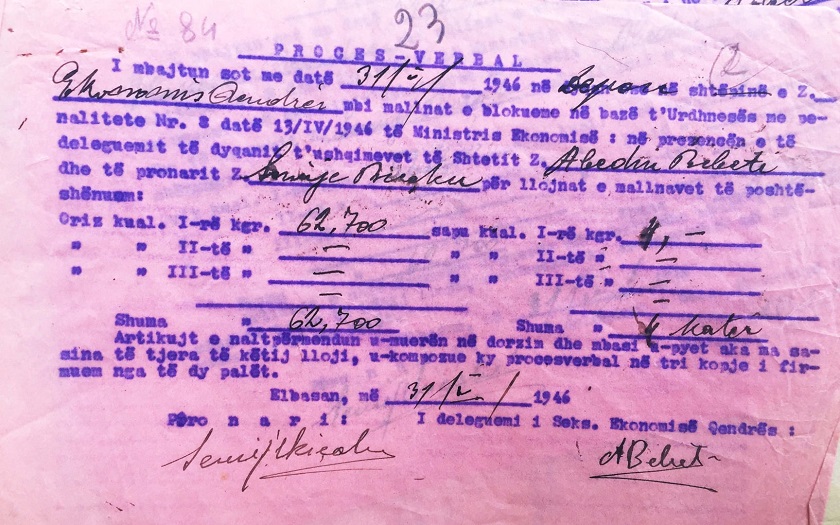 № 84
23
2
PROCES-VERBAL
I mbajtun sot me datë 31/V/ 1946 në të shtëpinë e Z.
mbi mallnat e blokueme në bazë t'Urdhnesës me pe-
nalitete Nr. 8 datë 13/IV/1946 të Ministris Ekonomisë : në prezencën e të
deleguemit të dyqanit t'ushqimevet të Shtetit Z. Abedin Bebeti
dhe të pronarit Z. për llojnat e mallnavet të poshtë-
shënuem:
Oriz kual. I-rë kgr. 62,700 sapu kual. I-rë kgr. 4,-
" " II-të " — " " II-të " —
" " III-të " — " " III-të " —
— —
Shuma " 62,700 Shuma " 4 katër
Artikujt e naltpërmendun u-muerën në dorzim dhe mbasi u-pyet aka ma sa-
sina të tjera të këtij lloji, u-kompozue ky procesverbal në tri kopje i fir-
muem nga të dy palët.
Elbasan, më 31/V/ 1946
Përo n a r i : I deleguemi i Seks. Ekonomisë Qendrës :
ABebeti